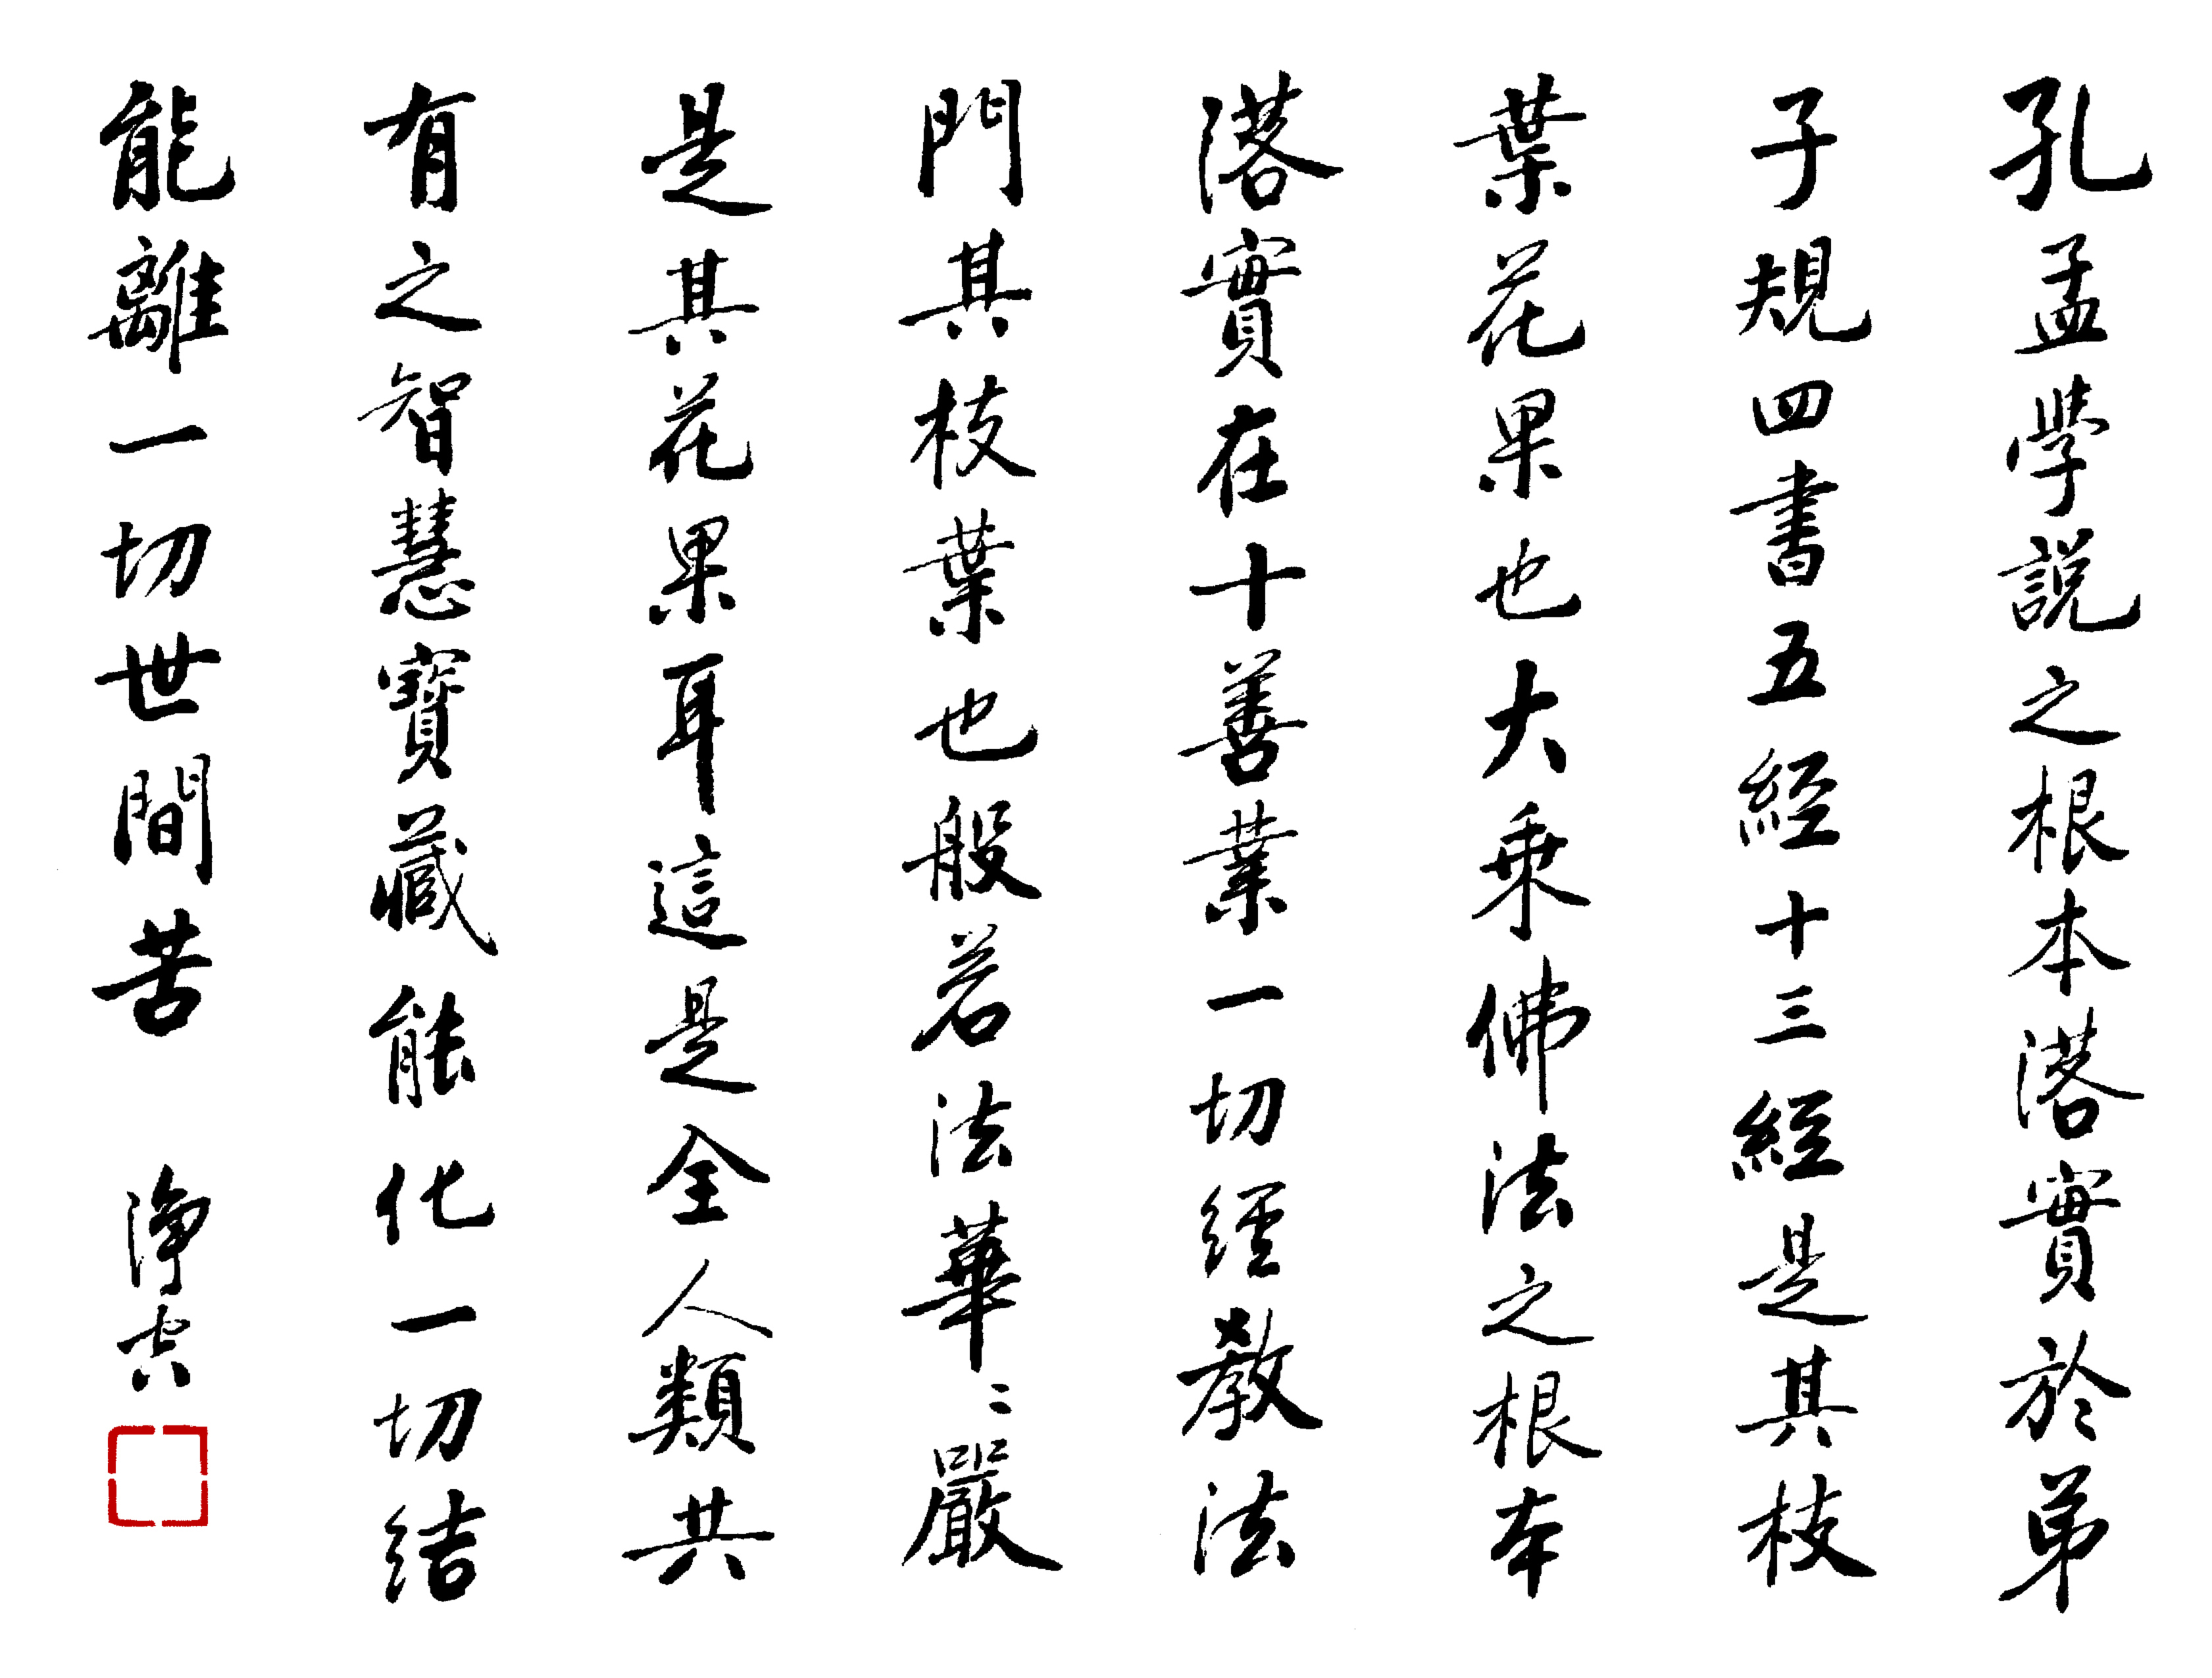 孔孟學說之根本落實於弟
子規四書五經十三經是其枝
葉花果也大乘佛法之根本
落實在十善業一切經教法
門其枝葉也般若法華華嚴
是其花果耳這是全人類共
有之智慧寶藏能化一切結
能離一切世間苦
淨空